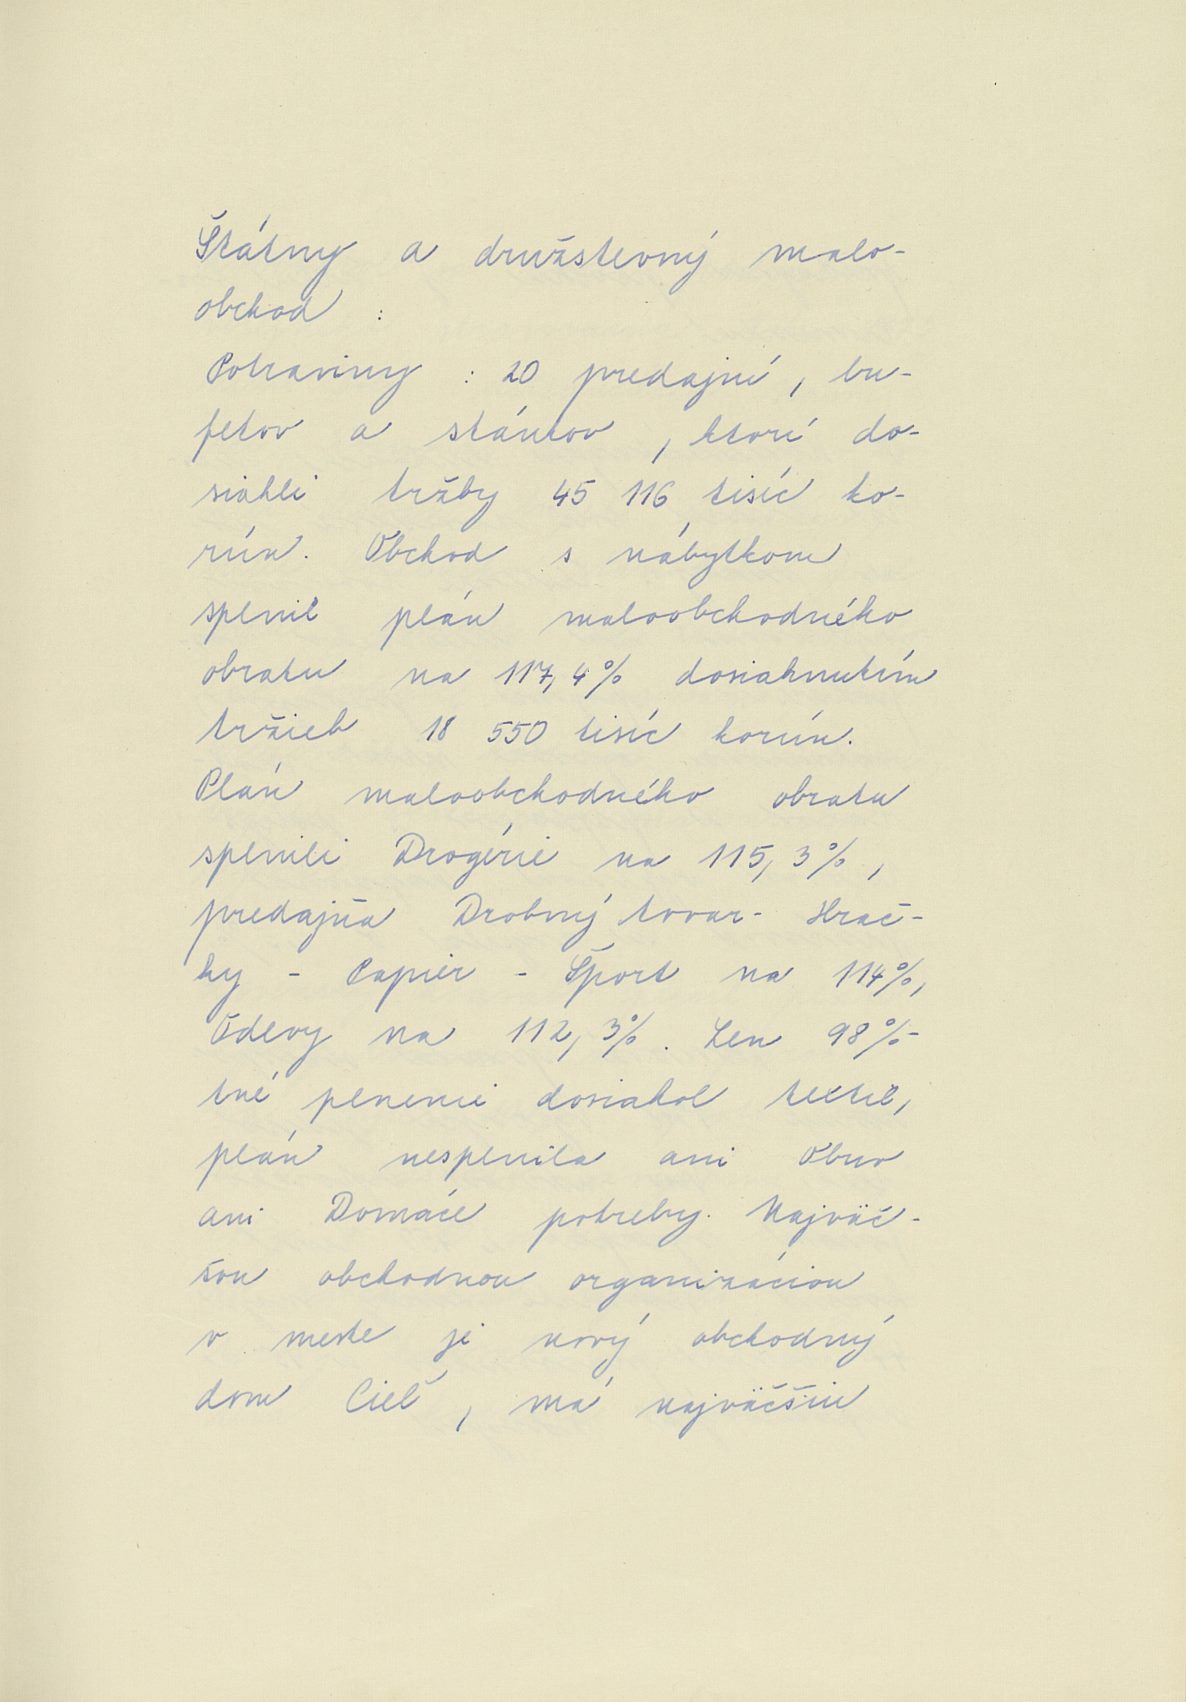 Štátny a družstevný malo-
obchod :
Potraviny : 20 predajní, bu-
fetov a stánkov, ktoré do-
siahli tržby 45 116 tisíc ko-
rún. Obchod s nábytkom
splnil plán maloobchodného
obratu na 117,4% dosiahnutím
tržieb 18 550 tisíc korún.
Plán maloobchodného obratu
splnili Drogérie na 115,3%,
predajňa Drobný tovar - Hrač-
ky - Papier - Šport na 114%,
Odevy na 112,3%. Len 98%-
tné plnenie dosiahol textil,
plán nesplnila ani Obuv
ani Domáce potreby. Najväč-
šou obchodnou organizáciou
v meste je nový obchodný
dom Cieľ, má najväčšie